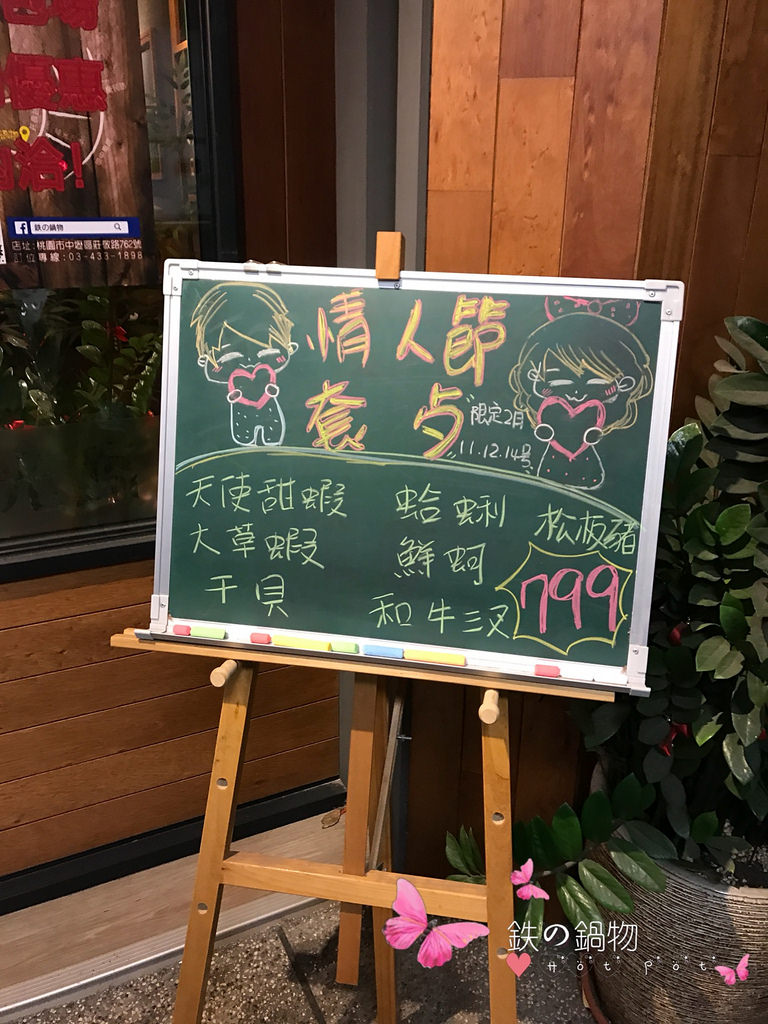 優惠
洽!
鉄の鍋物
店址:桃園市中壢區莊敬路762號
訂位專線:03-433-1898
情人節
套歺
限定2月
11.12.14号
天使甜蝦
大草蝦
干貝
蛤蜊
鮮蚵
和牛三叉
松板豬
799
鉄の鍋物
Hot Pot